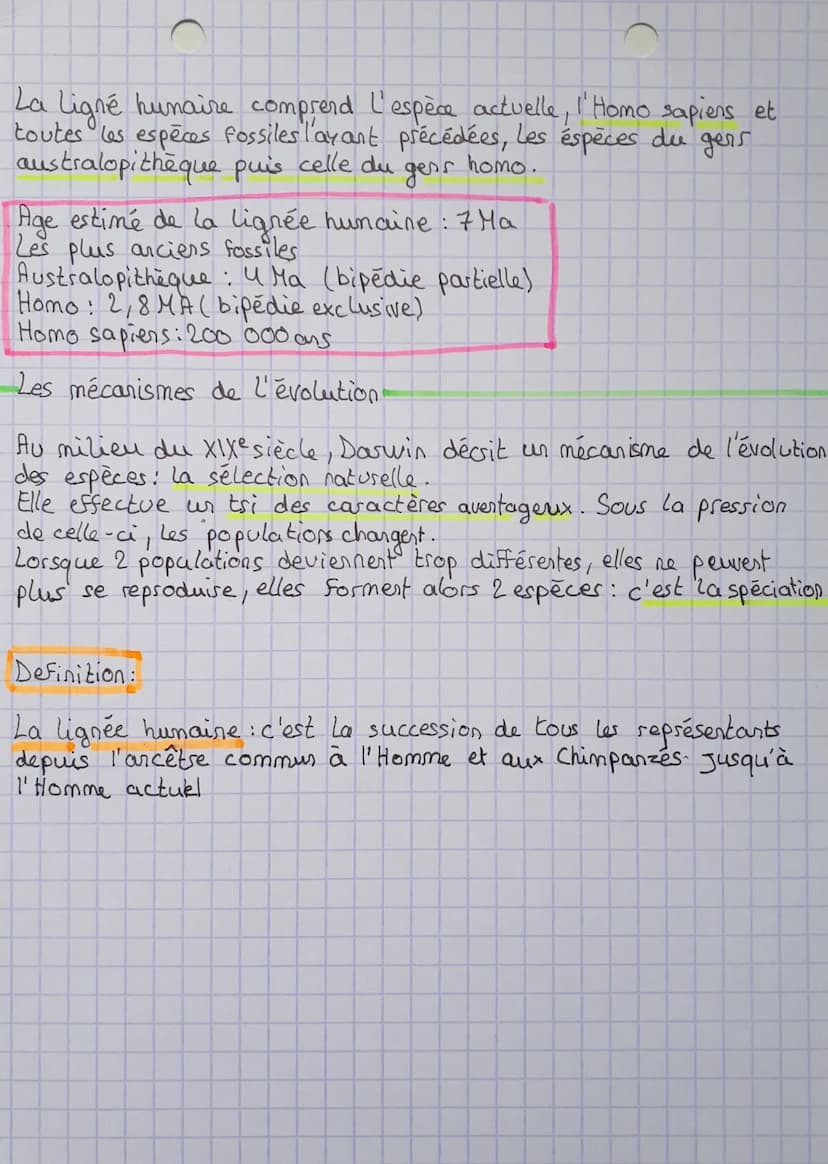 La ligné humaine comprend l'espèce actuelle, l'Homo sapiens et
toutes les espèces fossiles l'ayant précédées, les éspèces du genr
australopithèque puis celle du genr homo.
Age estimé de la lignée humaine : 7 Ma
Les plus anciens fossiles
Australopithèque : 4 Ma (bipédie partielle)
Homo : 2,8 MA (bipédie exclusive)
Homo sapiens : 200 000 ans
Les mécanismes de l'évolution
Au milieu du XIXe siècle, Darwin décrit un mécanisme de l'évolution
des espèces : la sélection naturelle.
Elle effectue un tri des caractères aventageux. Sous la pression
de celle-ci, les populations changent.
Lorsque 2 populations deviennent trop différentes, elles ne peuvent
plus se reproduire, elles forment alors 2 espèces : c'est la spéciation
Definition :
La lignée humaine : c'est la succession de tous les représentants
depuis l'ancêtre commun à l'Homme et aux Chimpanzés jusqu'à
l'Homme actuel